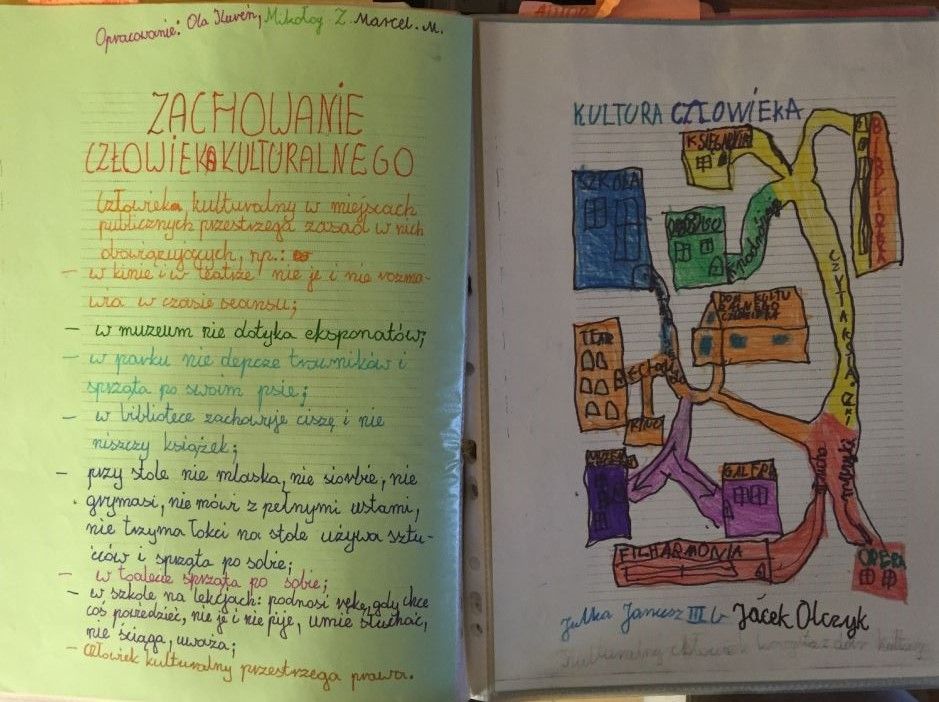 Opracowanie: Ola Kureń, Mikołaj Z. Marcel. M.
ZACHOWANIE
CZŁOWIEKA KULTURALNEGO
Człowieka kulturalny w miejscach
publicznych przestrzega zasad w nich
obowiązujących, np.:
- w kinie i w teatrze nie je i nie rozma-
wia w czasie seansu;
- w muzeum nie dotyka eksponatów;
- w parku nie depcze trawników i
sprząta po swoim psie;
- w bibliotece zachowuje ciszę i nie
niszczy książek;
- przy stole nie mlaska, nie siorbie, nie
grymasi, nie mówi z pełnymi ustami,
nie trzyma łokci na stole używa sztu-
ćców i sprząta po sobie;
- w toalecie sprząta po sobie;
- w szkole na lekcjach: podnosi rękę, gdy chce
coś powiedzieć, nie je i nie pije, umie słuchać,
nie ściąga, uważa;
- Człowiek kulturalny przestrzega prawa.
AUTOR
KULTURA CZŁOWIEKA
KSIĘGARNIA
BIBLIOTEKA
SZKOŁA
CZYTAKSIĄŻKI
DOM KULTU
RALNEGO
CZŁOWIEKA
TEATR
KINO
MUZEUM
GALERIA
FILHARMONIA
OPERA
Julka Janusz III b Jacek Olczyk
Kulturalny człowiek
kultury